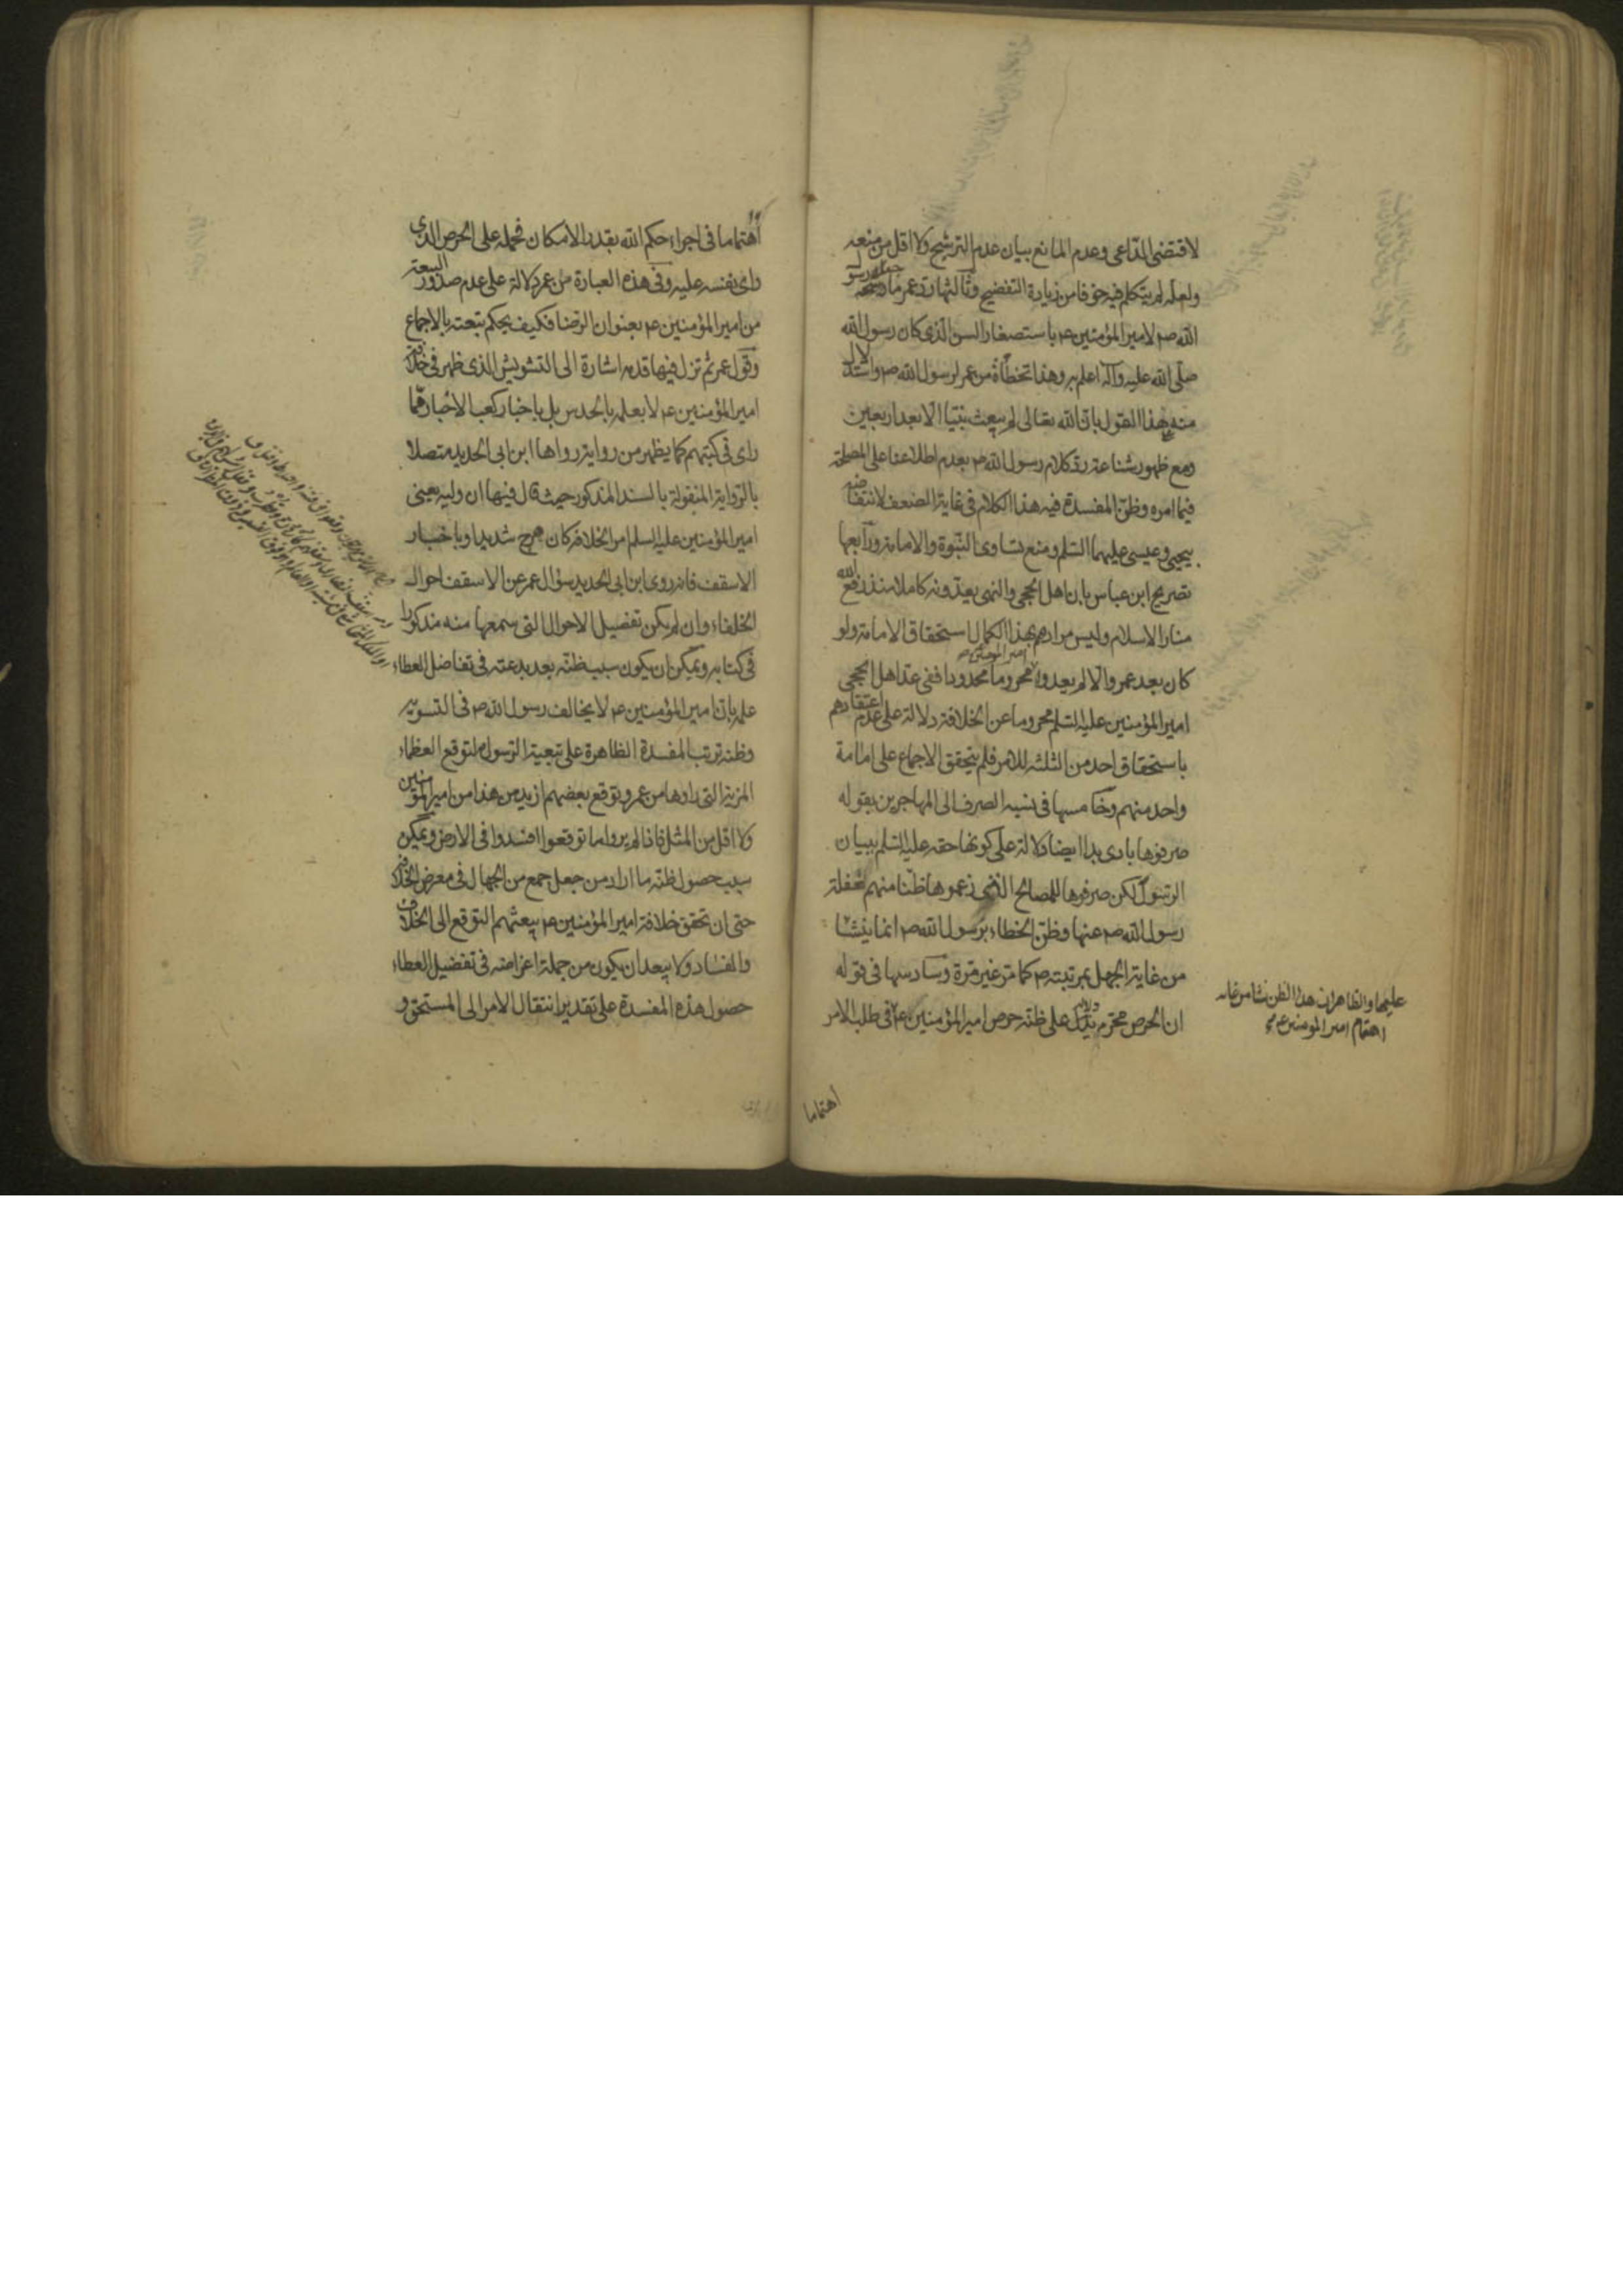 لاقتضى الداعى وعدم المانع ببيان عدم الترشيح ولا اقل من منعه
ولعله لم يتكلم فيه خوفا من زيادة التفضيح وثالثها رد عمر ما رسو
الله ص لامير المؤمنين ع باستصغار السن الذى كان رسول الله
صلى الله عليه وآله اعلم به وهذا تخطأة من عمر لرسول الله ص واستدلال
منه بهذا القول بان الله تعالى لم يبعث نبيا الا بعد اربعين
ومع ظهور شناعة رد كلام رسول الله ص بعدم اطلاعنا على المصلحة
فيما امره وظن المفسدة فيه هذا الكلام فى غاية الضعف لانتقاضه
بيحيى وعيسى عليهما السلم ومنع تساوى النبوة والامامة ورابعها
تصريح ابن عباس بان اهل الحجى والنهى يعدونه كاملا منذ رفع الله
منار الاسلام وليس مرادهم بهذا الكمال استحقاق الامامة ولو
كان بعد عمر والا لم يعدوا امير المؤمنين ع محروما محدودا ففى عد اهل الحجى
امير المؤمنين عليه السلم محروما عن الخلافة دلالة على عدم اعتقادهم
باستحقاق احد من الثلثه للامر فلم يتحقق الاجماع على امامة
واحد منهم وخامسها فى نسبه الصرف الى المهاجرين بقوله
صرفوها بادى بدا ايضا دلالة على كونها حقه عليه السلم ببيان
الرسول لكن صرفوها للمصالح التى زعموها ظنا منهم غفلة
رسول الله ص عنها وظن الخطاء برسول الله ص انما ينشا
من غاية الجهل بمرتبته ص كما مر غير مرة وسادسها فى قوله
ان الحرص محرم دلالة يدل على ظنه حرص امير المؤمنين ع فى طلب الامر
عليها والظاهر ان هذا الظن نشا من غاية
اهتمام امير المؤمنين ع
اهتماما
اهتماما فى اجراء حكم الله بقدر الامكان فحمله على الحرص الذى
راى نفسه عليه وفى هذه العبارة من عمر دلالة على عدم صدور البيعة
من امير المؤمنين ع بعنوان الرضا فكيف يحكم ببيعته بالاجماع
وقول عمر ثم تزل فيها قدمه اشارة الى التشويش الذى ظهر فى خلافة
امير المؤمنين ع لا بعلمه بالحدس بل باخبار كعب الاحبار مما
راى فى كتبهم كما يظهر من رواية رواها ابن ابى الحديد متصلا
بالرواية المنقولة بالسند المذكور حيث قال فيها ان وليه يعنى
امير المؤمنين عليه السلم من الخلافة كان هرج شديد او باخبار
الاسقف فانه روى ابن ابى الحديد سؤال عمر عن الاسقف احوال
الخلفاء وان لم يكن تفضيل الاحوال التى سمعها منه مذكورا
فى كتابه ويمكن ان يكون سبب ظنه بعد بدعته فى تفاضل العطاء
علمه بان امير المؤمنين ع لا يخالف رسول الله ص فى التسوية
وظنه ترتب المفسدة الظاهرة على تبعية الرسول لتوقع العظماء
المزية التى راوها من عمر وتوقع بعضهم ازيد من هذا من امير المؤمنين
ولا اقل من المثل فاذا لم يروا ما توقعوا افسدوا فى الارض ويمكن
سبب حصول ظنه ما اراد من جعل جمع من الجهال فى معرض الخلافة
حتى ان تحقق خلافة امير المؤمنين ع يبعثهم التوقع الى الخلاف
والفساد ولا يبعد ان يكون من جملة اغراضه فى تفضيل العطاء
حصول هذه المفسدة على تقدير انتقال الامر الى المستحق و